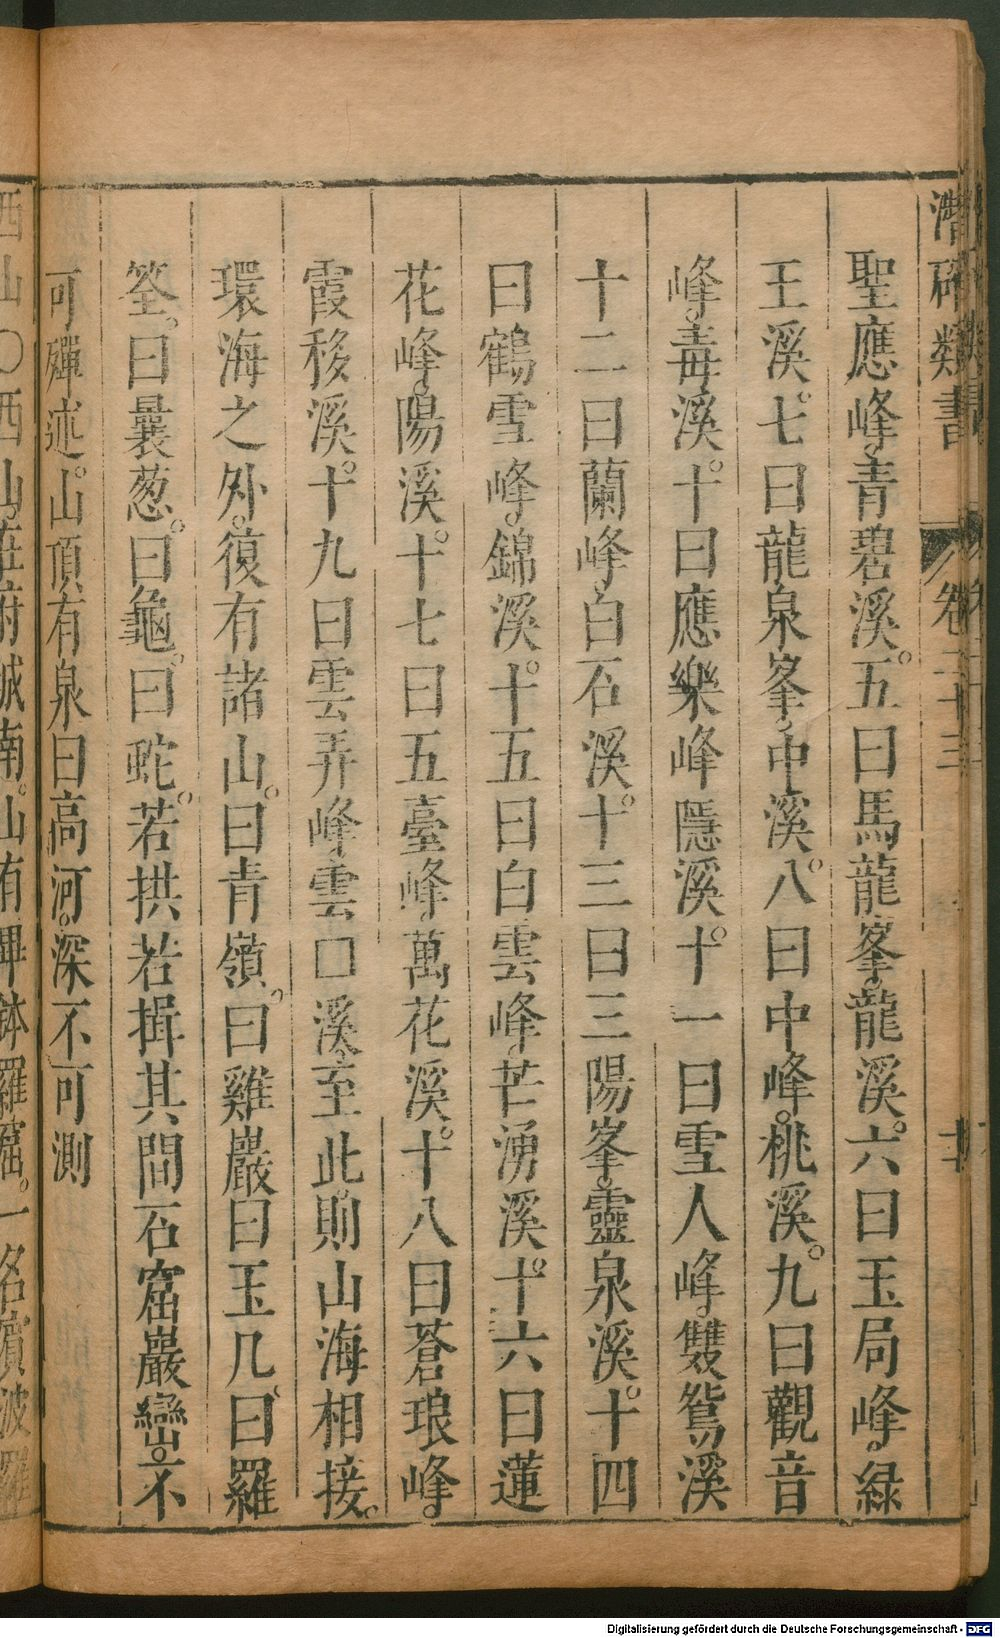 潛確類書 卷二十三
聖應峰青碧溪。五曰馬龍峯龍溪。六曰玉局峰綠
王溪。七曰龍泉峯中溪。八曰中峰桃溪。九曰觀音
峰毒溪。十曰應樂峰隱溪。十一曰雪人峰雙鴛溪
十二曰蘭峰白石溪。十三曰三陽峯靈泉溪。十四
曰鶴雪峰錦溪。十五曰白雲峰芒湧溪。十六曰蓮
花峰陽溪。十七曰五臺峰萬花溪。十八曰蒼琅峰
霞移溪。十九曰雲弄峰雲□溪至此則山海相接。
環海之外。復有諸山。曰青嶺。曰雞巖曰玉几曰羅
筌。曰曩葱。曰龜。曰蛇。若拱若揖其問石窟巖巒不
可殫述。山頂有泉曰高河。深不可測
西山〇西山在府城南。山有畀鉢羅窟。一名濱波羅
Digitalisierung gefördert durch die Deutsche Forschungsgemeinschaft - DFG